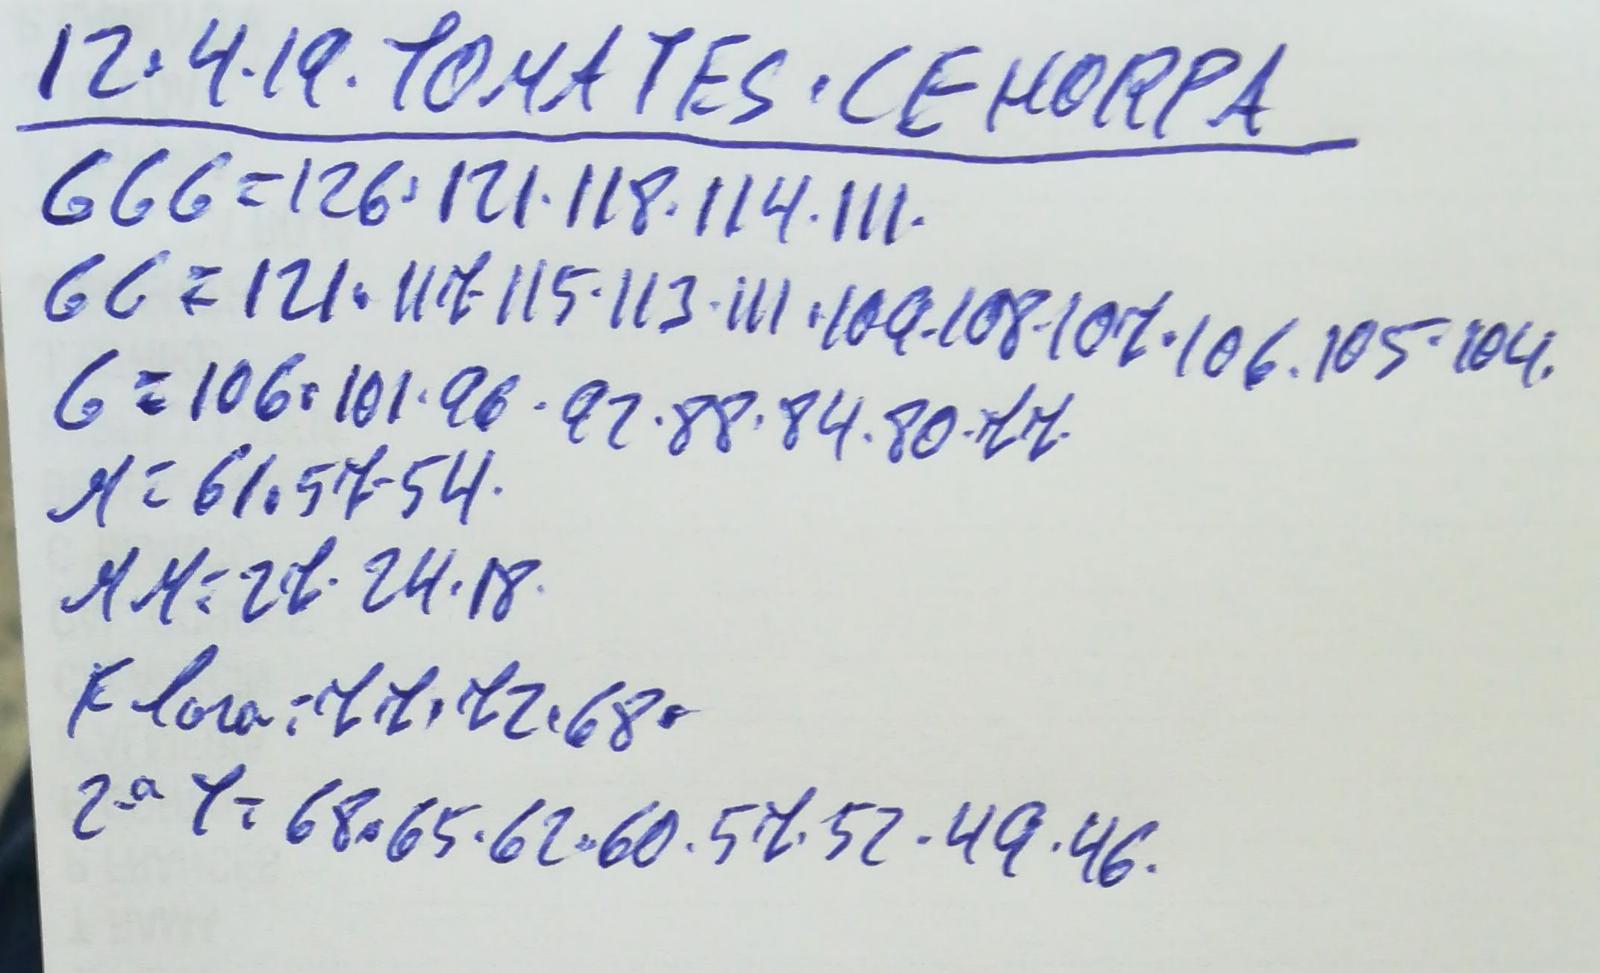 12.4.19. TOMATES. CEHORPA
GGG = 126. 121. 118. 114. 111.
GG = 121. 117. 115. 113. 111. 109. 108. 107. 106. 105. 104.
G = 106. 101. 96. 92. 88. 84. 80. 77.
M = 61. 57. 54.
MM = 27. 24. 18.
Flora = 77. 72. 68.
2ª T = 68. 65. 62. 60. 57. 52. 49. 46.